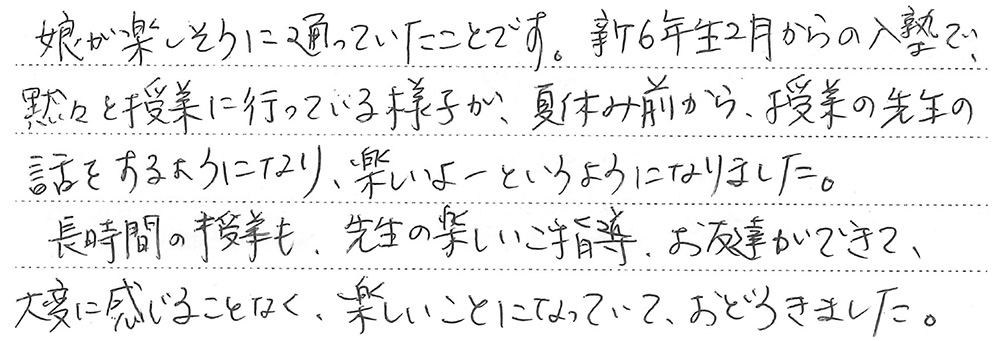 娘が楽しそうに通っていたことです。新6年生2月からの入塾で、
黙々と授業に行っている様子が、夏休み前から、授業の先生の
話をするようになり、楽しいよーというようになりました。
長時間の授業も、先生の楽しいご指導、お友達ができて、
大変に感じることなく、楽しいことになっていて、おどろきました。